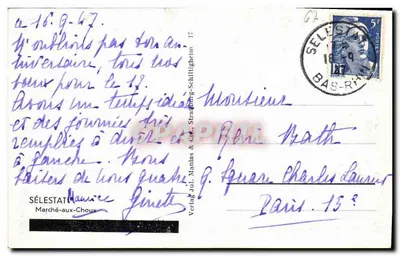 a 16.9.47.
N'oublions pas ton an-
niversaire, tous nos
voeux pour le 18.
Avons un temps idéal
et des journées très
remplies à droite et
à gauche. Bons
baisers de nous quatre.
Maurice Ginette
SÉLESTAT
Marché-aux-Choux
Strasbourg-Schiltigheim 17
67
SELESTAT
BAS-RHIN
5F
Monsieur
René Bath
9. Square Charles Laurent
Paris. 15e